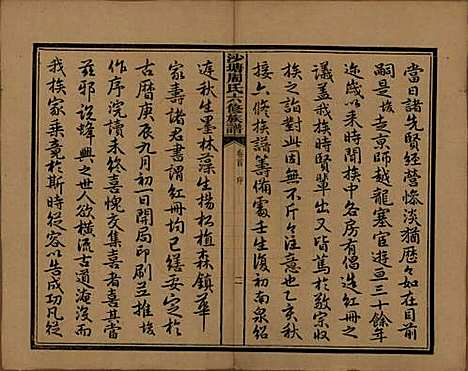 當日諸先賢經營慘淡猶歷々如在目前
嗣是走京師越龍塞宦遊亘三十餘年
迩歲以來時聞族中各房有倡造紅冊之
議蓋我族時賢輩出皆篤於敬宗收
族之誼對此固無不斤々注意也乙亥秋
接六修族譜籌備處壬生復初南泉紹
沙塘周氏六修族譜
卷首 序
二
庭秋生墨林藻生楊松植森鎮華
家壽諸君書謂紅冊均已繕妥定於
古曆庚辰九月初一日開局印刷並推埃
作序浣讀未終喜愧交集喜者喜其當
茲邪說蜂興之世人欲橫流古道淹沒而
我族家乘竟於斯時從容以告成功凡從